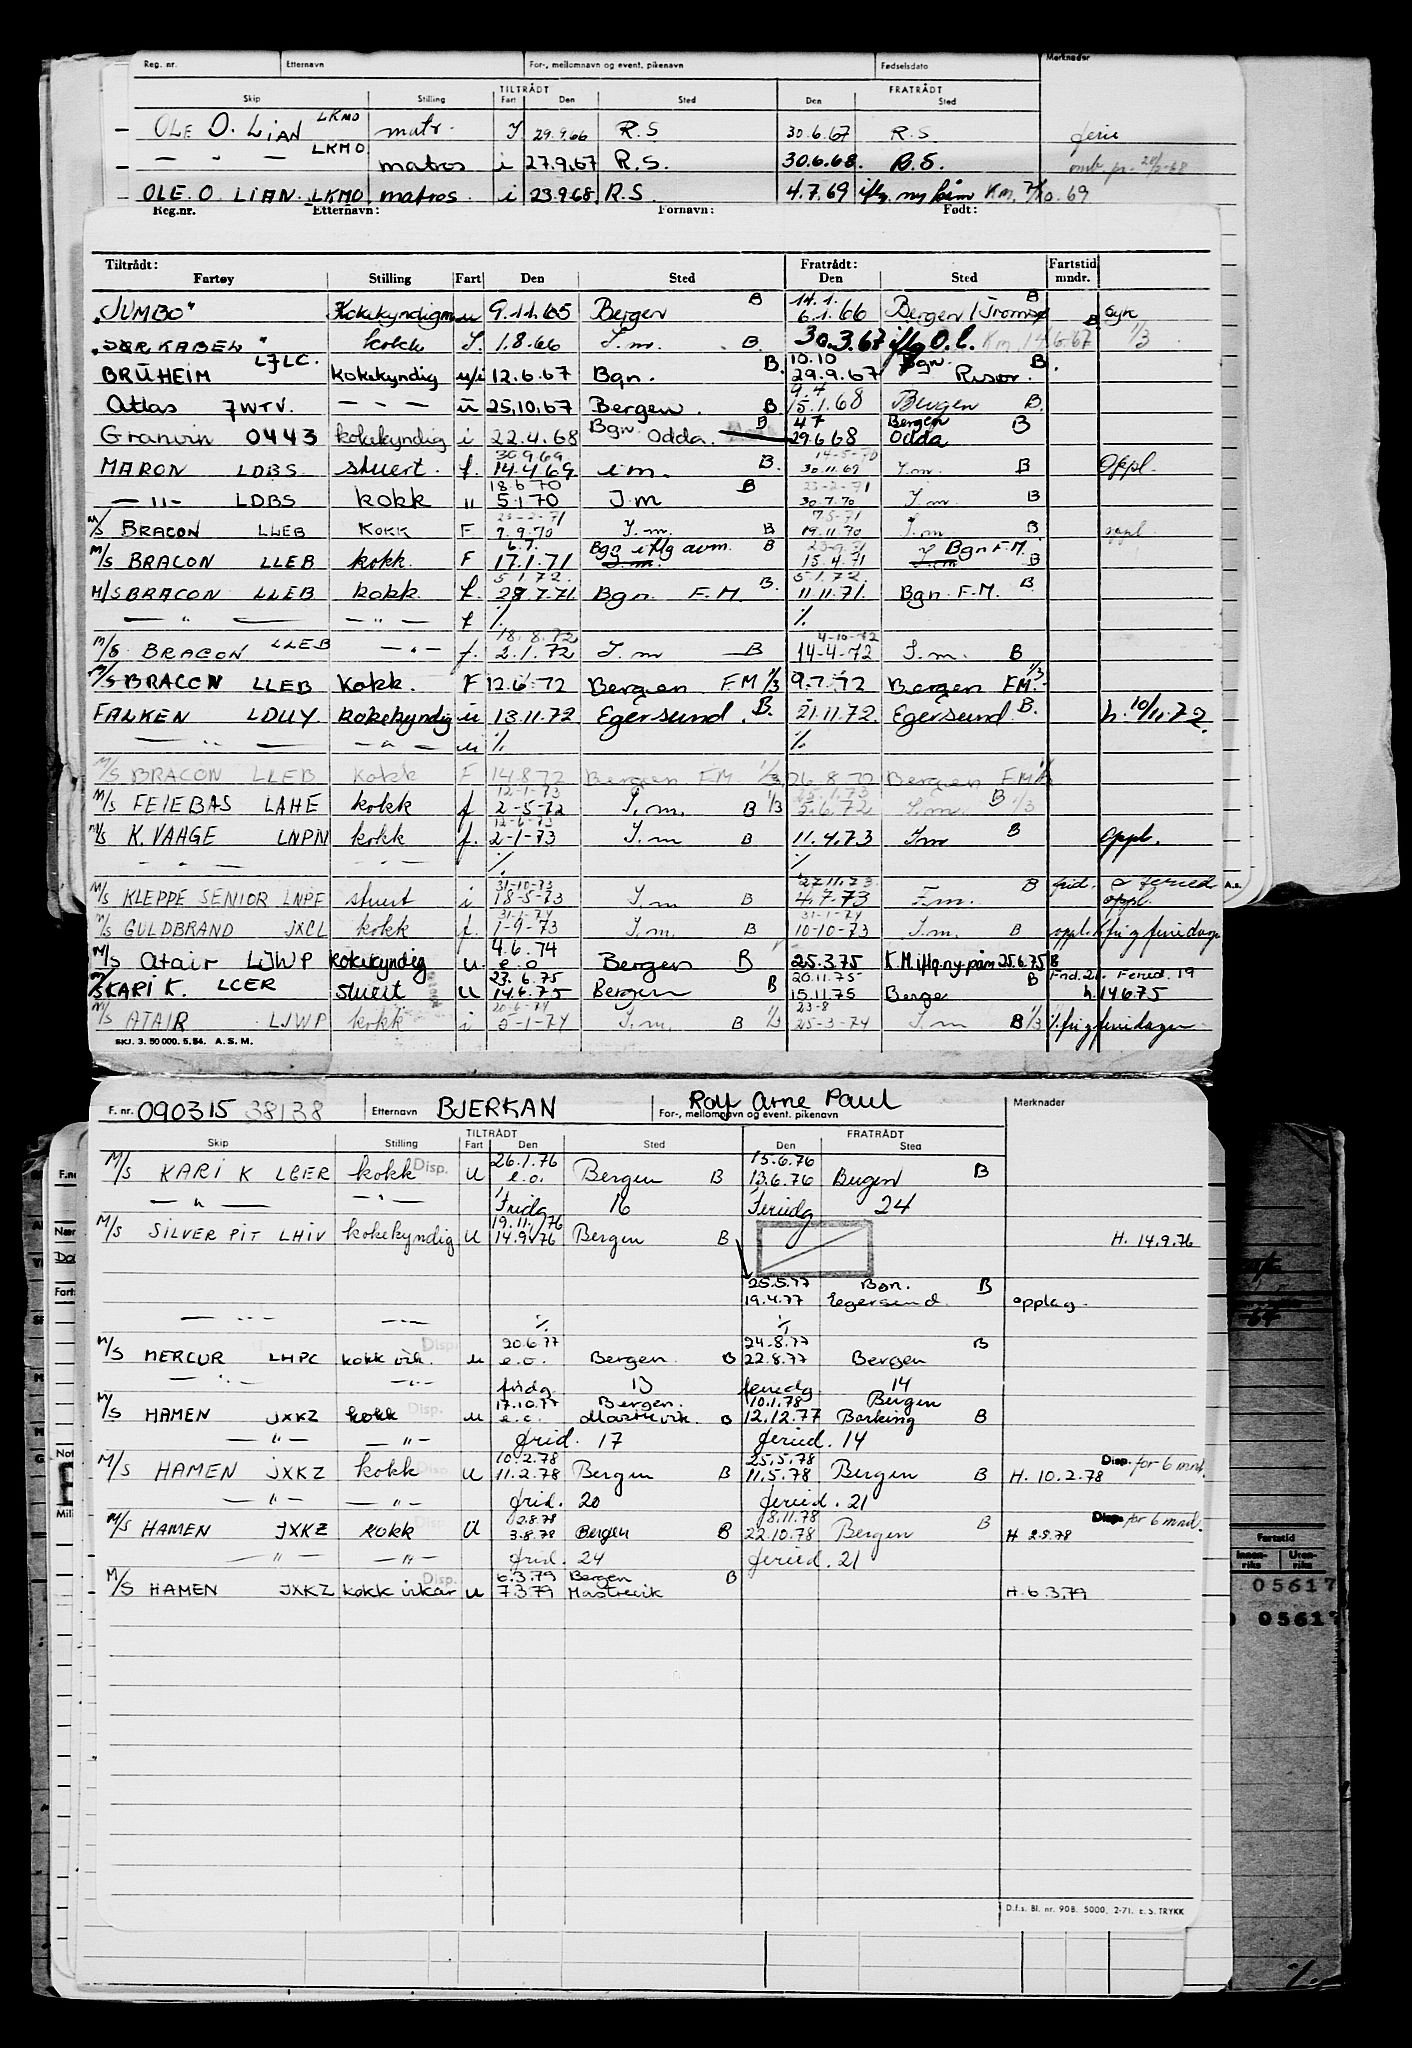 Reg. nr. Etternavn For-, mellomnavn og event. pikenavn Fødselsdato Merknader
TILTRÅDT FRATRÅDT
Skip Stilling Fart Den Sted Den Sted
OLE O. LIAN LKMO matr. 29.9.66 R.S 30.6.67 R.S ferie
— " — LKMO. matros i 27.9.67 R.S. 30.6.68. R.S.
OLE. O LIAN. LKMO matros. i 23.9.68 R.S 4.7.69
Reg.nr. Etternavn: Fornavn: Født:
Tiltrådt: Fratrådt: Fartstid
Fartøy Stilling Fart Den Sted Den Sted mndr.
B 14.1. B
"JUMBO" u 9.11.65 Bergen 6.1.66 Bergen / Tromsø
"SØRKABEL" kokk 1.8.66 I.m. B. 30.3.67 Km. 14.6.67 1/3
LJLC. B. 10.10 Bgn. B.
BRUHEIM kokekyndig u/i 12.6.67 Bgn. 29.9.67 Risør.
4.4
Atlas JWTV. — " — u 25.10.67 Bergen. B. 15.1.68 Bergen B.
Bgn. B 4.7 Bergen B
Granvin 0443 kokekyndig i 22.4.68 Odda. 29.6.68 Odda
30.9.69 14-5-70
MARON LDBS. stuert. f. 14.4.69 i m. B. 30.11.69 I.m. B Oppl.
18.6.70 B 23-2-71
— " — LDBS kokk " 5.1.70 I.m 30.7.70 I.m B
23-2-71 7.5-71
M/S BRACON LLEB KOKK F 9.9.70 I.m. B 19.11.70 I.m B oppl.
6.7. Bgn iflg avm. B Bgn F.M.
M/S BRACON LLEB kokk. F 17.1.71 I.m. 15.4.71 I.m B
5.1.72. 5.1.72.
M/S BRACON LLEB kokk f. 29.7.71 Bgn. F.M. B. 11.11.71. Bgn. F.M. B
— " — — " — f %. %
18.8.72 4-10-72
M/S BRACON LLEB — " — f. 2.1.72 I.m B 14-4-72 I.m. B
M/S BRACON LLEB Kokk. F 12.6.72 Bergen F.M 1/3 9.7.72 Bergen F.M. 1/3
FALKEN LDUY kokekyndig u 13.11.72 Egersund. B. 21.11.72. Egersund B. h. 10/11.72.
— " — — " — u %. %.
M/S BRACON LLEB Kokk F 14.8.72 Bergen F.M. 1/3 26.8.72 Bergen F.M 1/3
12-1-73
M/S FEIEBAS LAHE kokk f 2-5-72 I.m. B 1/3 5.6.72 I.m. B 1/3
12-6-73
M/S K. VAAGE LNPN kokk f. 2-1-73 I.m B 11.4.73 I.m B Oppl.
— " — — " — %. %
31-10-73 27.11.73 B frid. o feried
M/S KLEPPE SENIOR LNPF stuert i 18-5-73 I.m B 4.7.73 I.m. oppl.
31-1-74 31-1-74
M/S GULDBRAND JXCL kokk f. 1-9-73 I.m. B 10-10-73 I.m. B
4.6.74
M/S Atair LJWP kokekyndig u. e.o Bergen B 25.3.75 K.M. iflg. ny. påm 25.6.75 B
23.6.75 20.11.75 B Frid. 21. Feried. 19
M/S KARI K. LCER stuert u 14.6.75 Bergen B 15.11.75 Berge h. 14.6.75
20-6-74 23-8
M/S ATAIR LJWP kokk i 5-1-74 I.m. B 1/3 25-3-74 I.m B 1/3
SKJ. 3. 50 000. 5.54. A.S.M.
F. nr. 090315 38138 Etternavn BJERKAN Rolf Arne Paul For-, mellomnavn og event. pikenavn Merknader
TILTRÅDT FRATRÅDT
Skip Stilling Fart Den Sted Den Sted
26.1.76 15.6.76
M/S KARI K LCER kokk Disp. U e.o. Bergen B 13.6.76 Bergen B
— " — — " — Fridg 16 Feriedg 24
19.11.76
M/S SILVER PIT LHIV kokekyndig U 14.9.76 Bergen B H. 14.9.76
25.5.77 Bgn. B
19.4.77 Egersund. opplag.
— " — — " — %. %
20.6.77 24-8.77 B
M/S MERCUR LHPC kokk vik. u e.o. Bergen. B 22.8.77 Bergen
— " — — " — fridg 13 feriedg 14
17.10.77 Bergen. 10.1.78 Bergen
M/S HAMEN JXKZ kokk Disp. u e.o. Mastrevik. B 12.12.77 Barking B
— " — — " — frid. 17 feried. 14
10.2.78 25.5.78 Disp. for 6 mnd.
M/S HAMEN JXKZ kokk U 11.2.78 Bergen B 11.5.78 Bergen B H. 10.2.78
— " — — " — frid. 20 feried. 21
2.8.78 8.11.78 Disp. for 6 mnd.
M/S HAMEN JXKZ kokk U 3.8.78 Bergen B 22.10.78 Bergen B H 2.8.78
— " — — " — frid. 24 feried. 21
6.3.79 Bergen B
M/S HAMEN JXKZ kokk vikar Disp. U 7.3.79 Mastrevik H. 6.3.79
Fartstid
Innenriks Utenriks
05617
05617
D.f.s. Bl. nr. 90B. 5000. 2-71. E.S. TRYKK